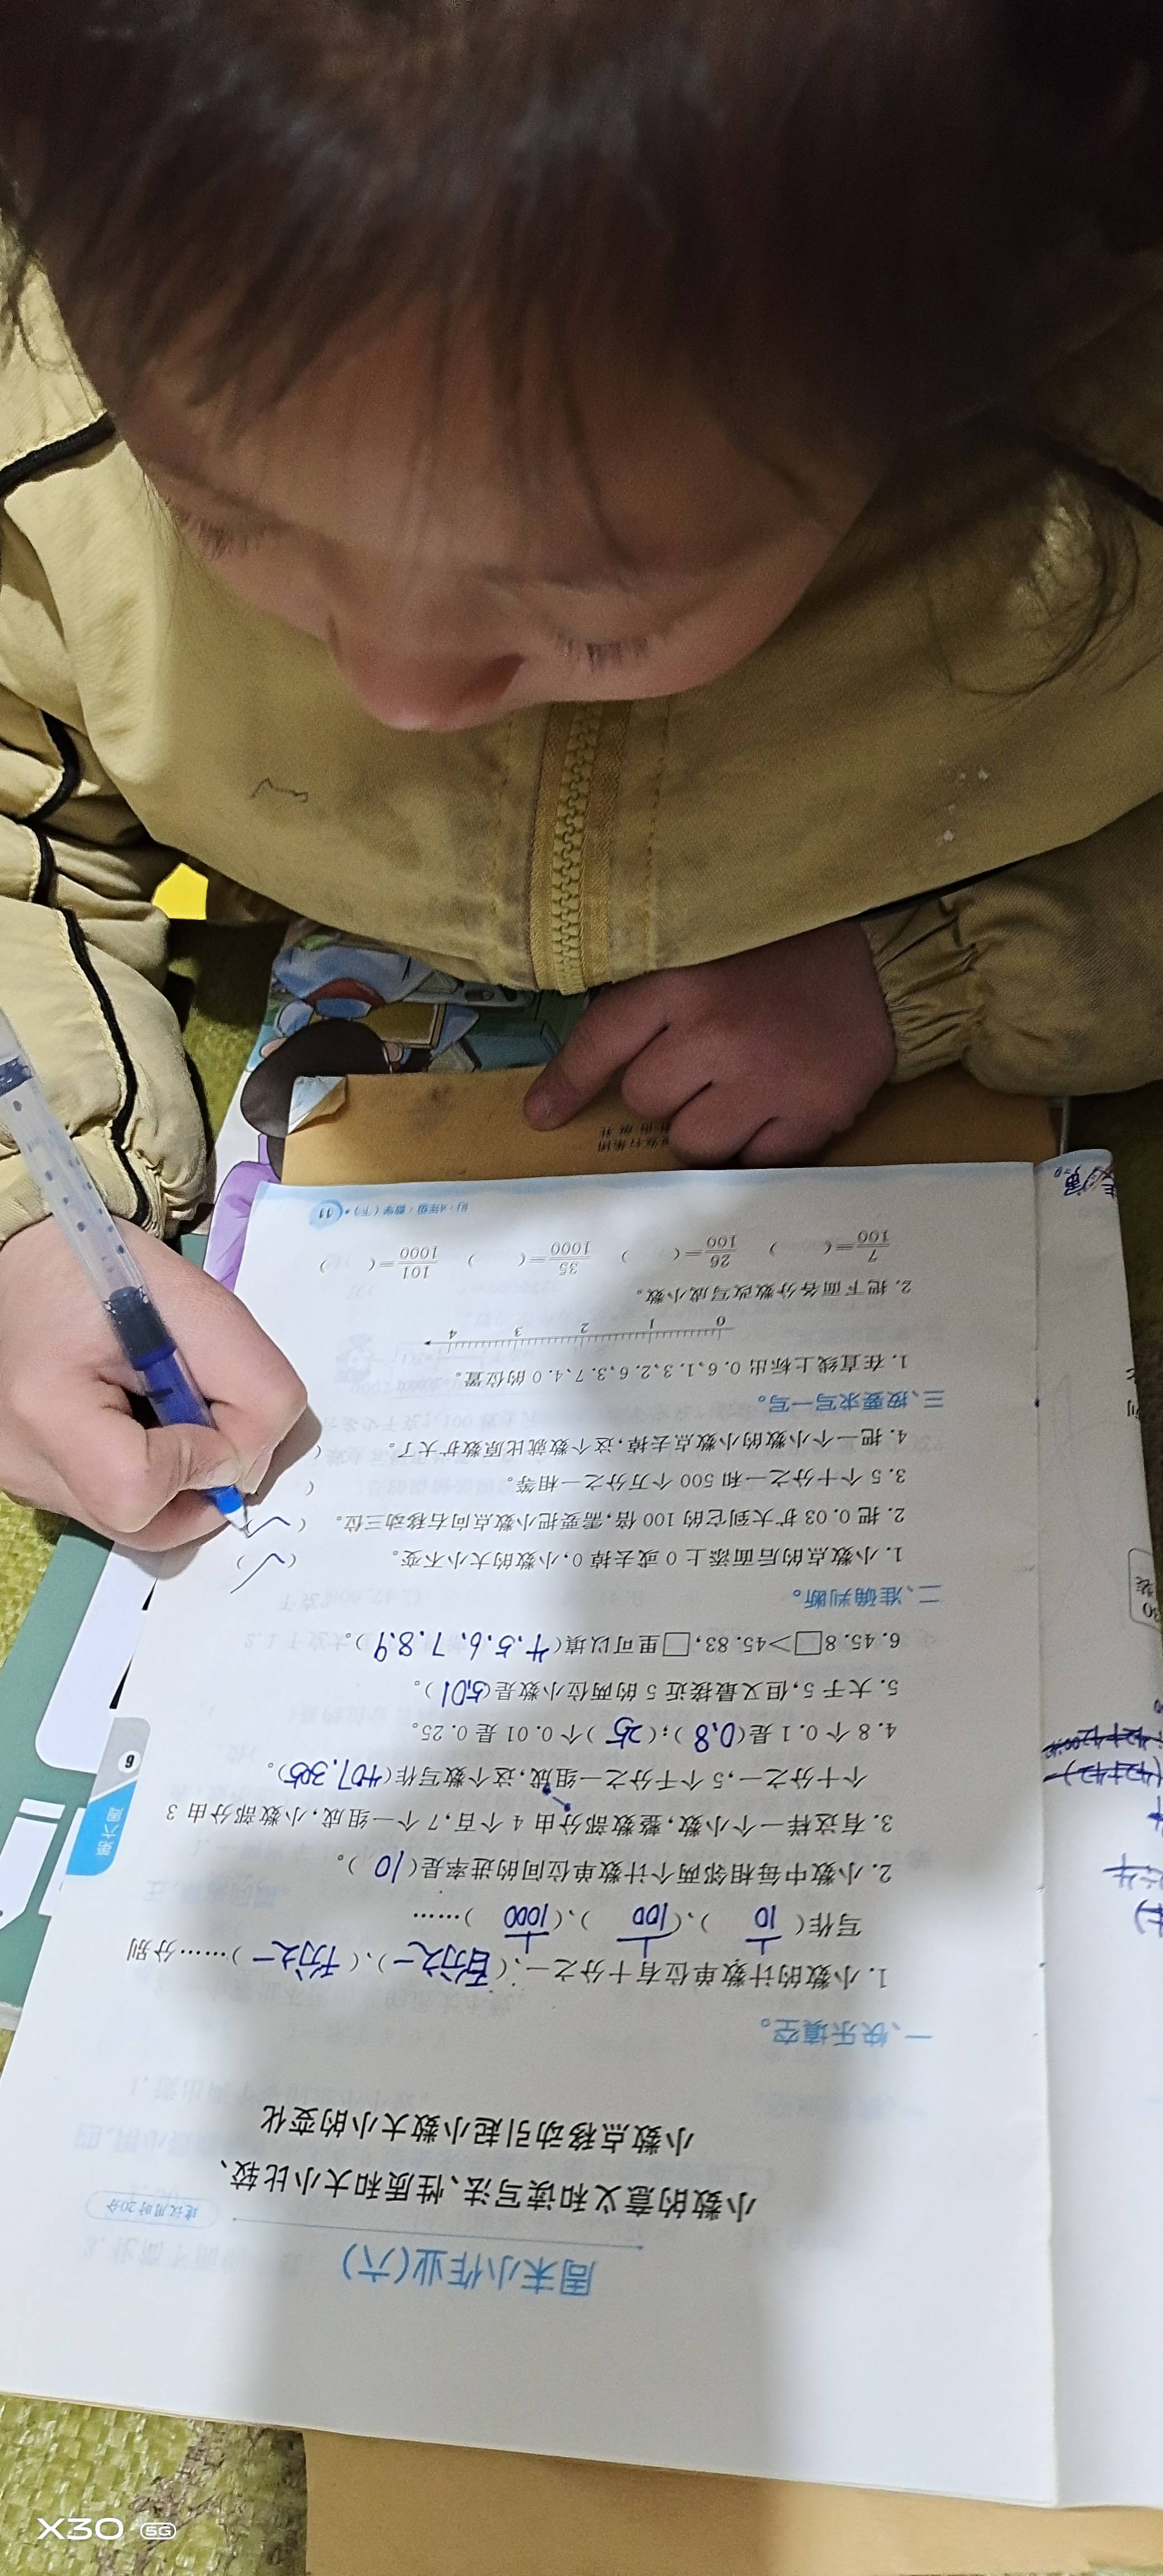 周末小作业(六)
建议用时20分
小数的意义和读写法、性质和大小比较、
小数点移动引起小数大小的变化
一、快乐填空。
1. 小数的计数单位有十分之一、(百分之一)、(千分之一)……分别
写作( 1/10 )、( 1/100 )、( 1/1000 )……
2. 小数中每相邻两个计数单位间的进率是( 10 )。
3. 有这样一个小数,整数部分由 4 个百,7 个一组成,小数部分由 3
个十分之一,5 个千分之一组成,这个数写作(407.305)。
4. 8 个 0.1 是(0.8);(25)个 0.01 是 0.25。
5. 大于 5,但又最接近 5 的两位小数是(5.01)。
6. 45.8□>45.83,□里可以填(4.5.6.7.8.9)。
二、准确判断。
1. 小数点的后面添上 0 或去掉 0,小数的大小不变。 ( ✓ )
2. 把 0.03 扩大到它的 100 倍,需要把小数点向右移动三位。 ( ✓
3. 5 个十分之一和 500 个万分之一相等。 (
4. 把一个小数的小数点去掉,这个数就比原数扩大了。 (
三、按要求写一写。
1. 在直线上标出 0.6、1.3、2.6、3.7、4.0 的位置。
0 1 2 3 4
2. 把下面各分数改写成小数。
7/100=( ) 26/100=( ) 35/1000=( ) 101/1000=( )
RJ·4年级·数学(下)· 11
第六周
6
X30 5G